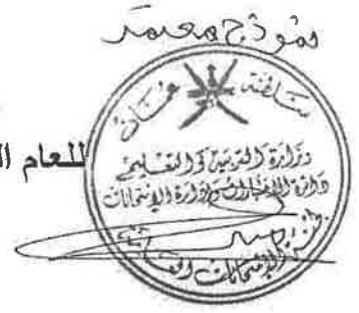 نموذج معتمد
سلطنة عُمان
للعام ال
وزارة التربية والتعليم
دائرة الاختبارات وإدارة الامتحانات